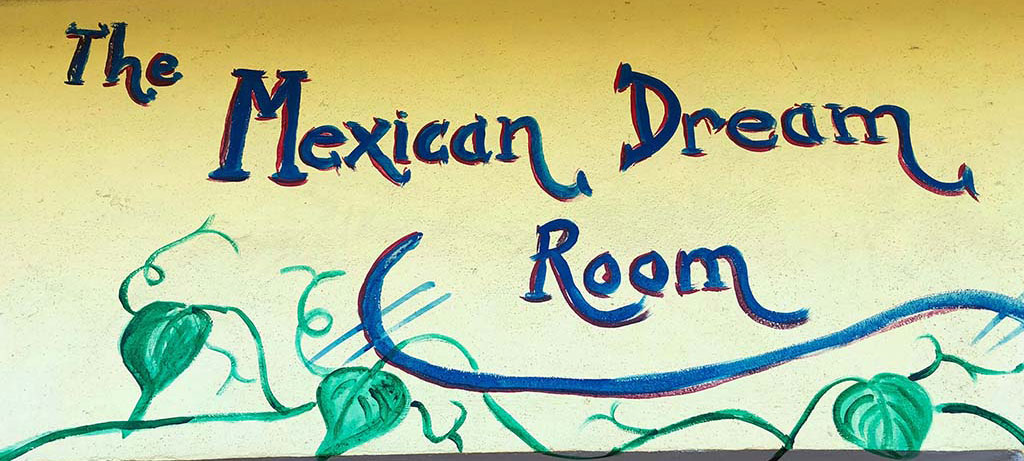 The
Mexican Dream
Room